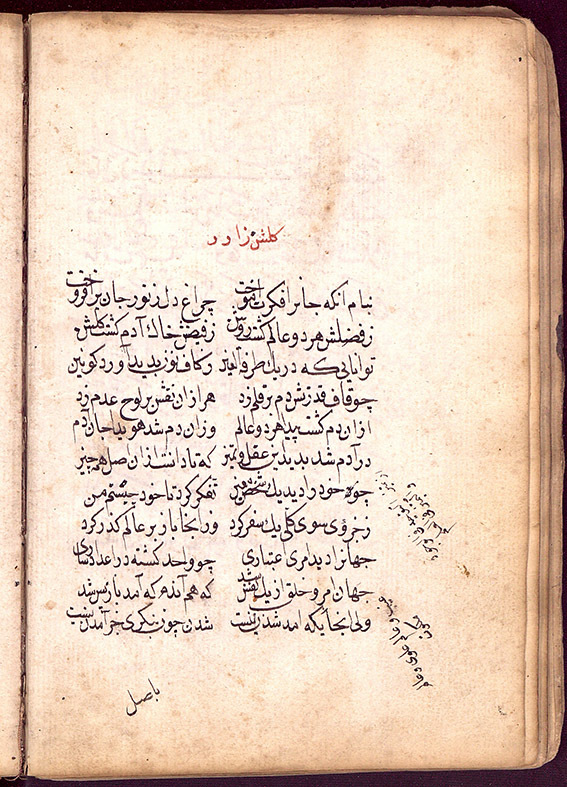 کلشن راز
بنام انکه جانرا فکرت آموخت چراغ دل زنور جان برافروخت
زفضلش هر دو عالم کشت روشن زفیضش خاك آدم کشت کلشن
توانایی که دریك طرفة العین زکاف نون پدید آورد کونین
چو قاف قدرتش دم بر قلم زد هزاران نقش بر لوح عدم زد
ازان دم کشت پیدا هر دو عالم وزان دم شد هویدا جان آدم
در آدم شد پدید این عقل و تمیز که تا دانست ازان اصل همه چیز
چو خود را دید یك شخص معین تفکر کرد تا خود چیستم من
زجزوی سوی کلی یك سفر کرد وزانجا باز بر عالم کذر کرد
جهانرا دید امری اعتباری چو واحد کشته در اعداد ساری
جهان امر و خلق از یك نفس شد که هم آندم که آمد باز پس شد
ولی انجایکه امد شدن نیست شدن چون بنکری جز آمدن نیست
باصل